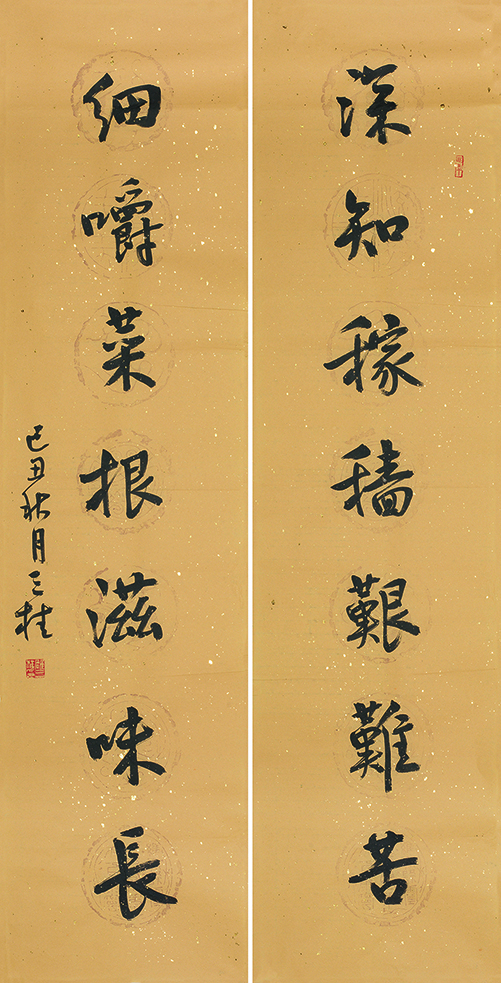 深知稼穡艱難苦
細嚼菜根滋味長
己丑秋月三桂